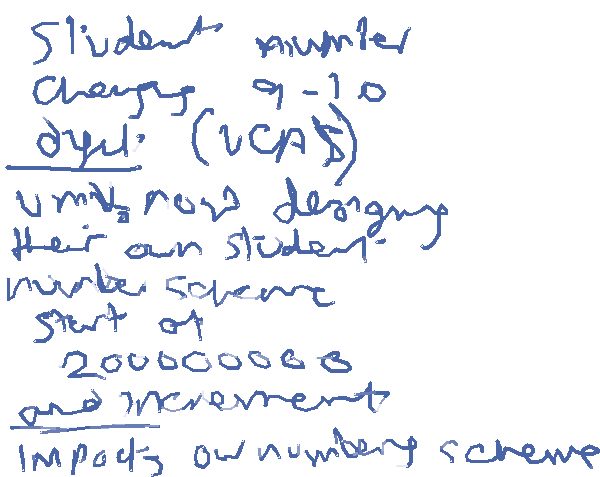 Student number
changing 9-10
digit (UCAS)
Units now designing
their own student
number scheme
start at
200000000
and increment
impacts our numbering scheme